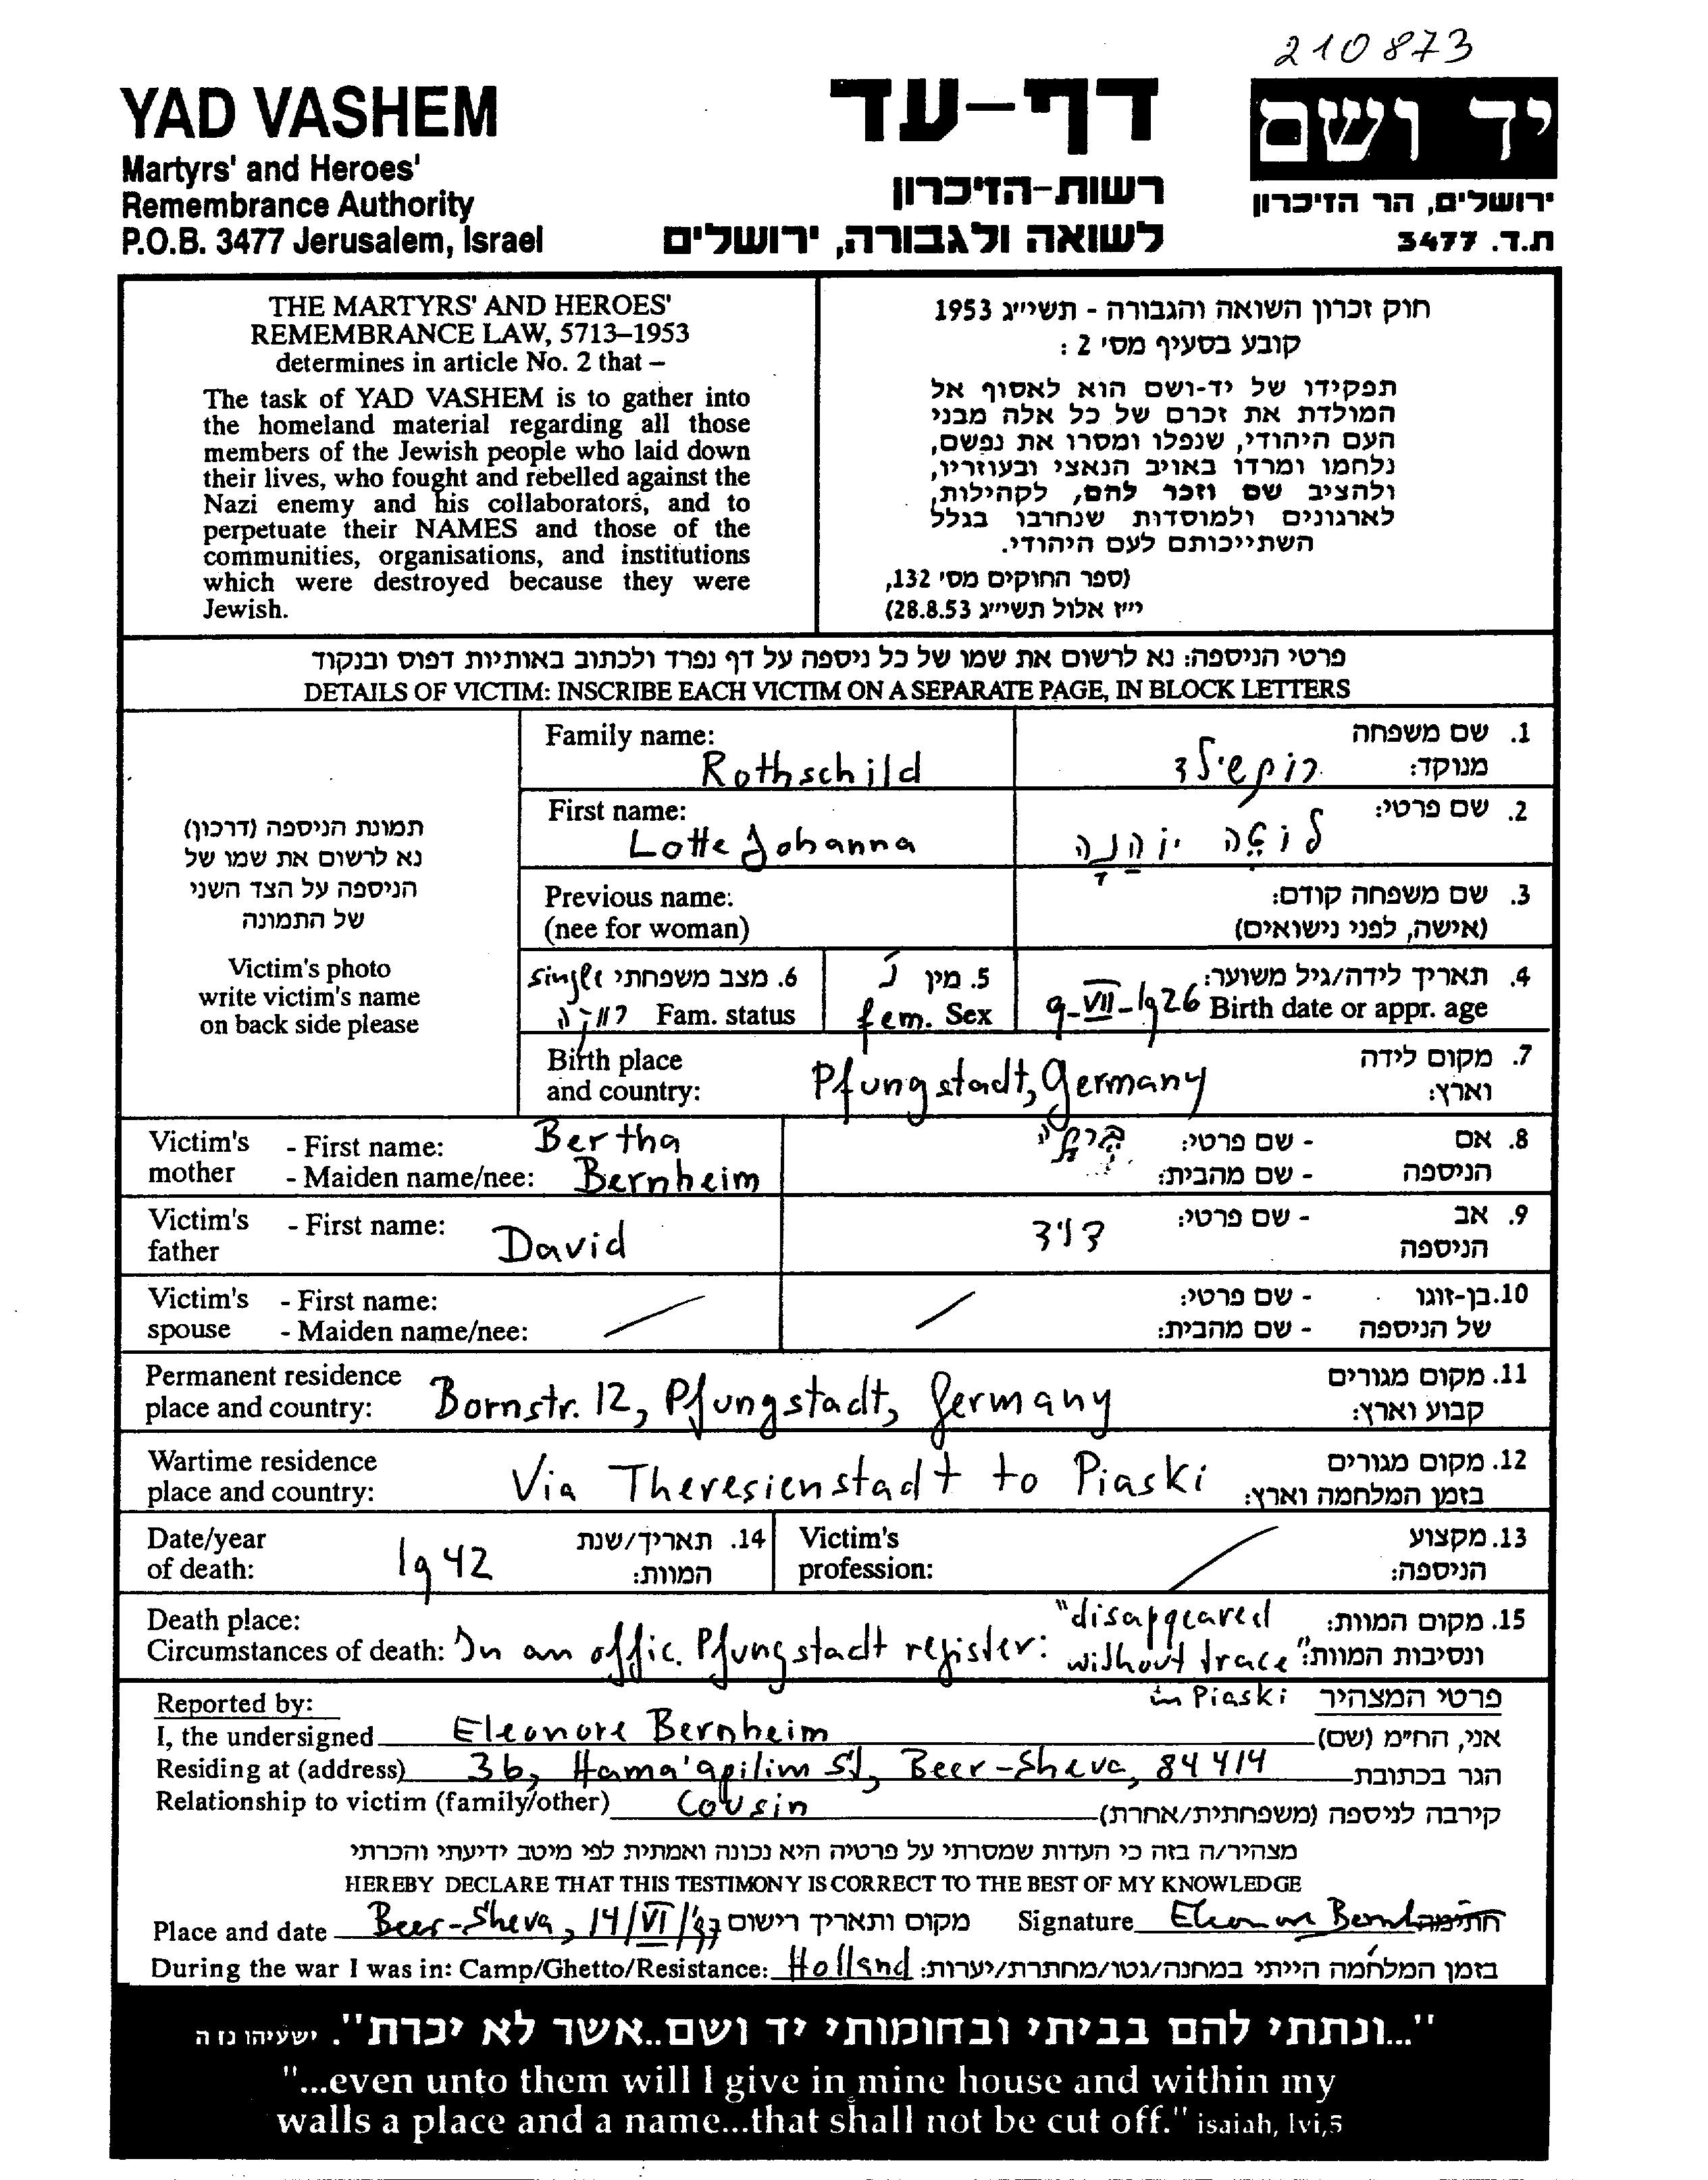 210873
YAD VASHEM
Martyrs' and Heroes'
Remembrance Authority
P.O.B. 3477 Jerusalem, Israel
דף-עד
רשות-הזיכרון
לשואה ולגבורה, ירושלים
יד ושם
ירושלים, הר הזיכרון
ת.ד. 3477
THE MARTYRS' AND HEROES'
REMEMBRANCE LAW, 5713–1953
determines in article No. 2 that –
The task of YAD VASHEM is to gather into
the homeland material regarding all those
members of the Jewish people who laid down
their lives, who fought and rebelled against the
Nazi enemy and his collaborators, and to
perpetuate their NAMES and those of the
communities, organisations, and institutions
which were destroyed because they were
Jewish.
חוק זכרון השואה והגבורה - תשי״ג 1953
קובע בסעיף מס׳ 2 :
תפקידו של יד-ושם הוא לאסוף אל
המולדת את זכרם של כל אלה מבני
העם היהודי, שנפלו ומסרו את נפשם,
נלחמו ומרדו באויב הנאצי ובעוזריו,
ולהציב שם וזכר להם, לקהילות,
לארגונים ולמוסדות שנחרבו בגלל
השתייכותם לעם היהודי.
(ספר החוקים מס׳ 132,
י״ז אלול תשי״ג 28.8.53)
פרטי הניספה: נא לרשום את שמו של כל ניספה על דף נפרד ולכתוב באותיות דפוס ובנקוד
DETAILS OF VICTIM: INSCRIBE EACH VICTIM ON A SEPARATE PAGE, IN BLOCK LETTERS
תמונת הניספה (דרכון)
נא לרשום את שמו של
הניספה על הצד השני
של התמונה
Victim's photo
write victim's name
on back side please
Family name: Rothschild רוטשילד 1. שם משפחה מנוקד:
First name: Lotte Johanna לוטה יוהנה 2. שם פרטי:
Previous name: 3. שם משפחה קודם:
(nee for woman) (אישה, לפני נישואים)
single 6. מצב משפחתי נ 5. מין 4. תאריך לידה/גיל משוער:
רווקה Fam. status fem. Sex 9-VII-1926 Birth date or appr. age
Birth place and country: Pfungstadt, Germany 7. מקום לידה וארץ:
Victim's mother - First name: Bertha ברטה - שם פרטי: 8. אם הניספה
- Maiden name/nee: Bernheim - שם מהבית:
Victim's father - First name: David דוד - שם פרטי: 9. אב הניספה
Victim's spouse - First name: - שם פרטי: 10. בן-זוגו של הניספה
- Maiden name/nee: - שם מהבית:
Permanent residence place and country: Bornstr. 12, Pfungstadt, Germany 11. מקום מגורים קבוע וארץ:
Wartime residence place and country: Via Theresienstadt to Piaski 12. מקום מגורים בזמן המלחמה וארץ:
Date/year of death: 1942 14. תאריך/שנת המוות: Victim's profession: 13. מקצוע הניספה:
Death place: 15. מקום המוות:
Circumstances of death: In an offic. Pfungstadt register: "disappeared without trace" in Piaski ונסיבות המוות:
Reported by: פרטי המצהיר
I, the undersigned Eleonore Bernheim אני, הח״מ (שם)
Residing at (address) 3b, Hama'apilim St, Beer-Sheva, 84414 הגר בכתובת
Relationship to victim (family/other) Cousin קירבה לניספה (משפחתית/אחרת)
מצהיר/ה בזה כי העדות שמסרתי על פרטיה היא נכונה ואמתית לפי מיטב ידיעתי והכרתי
HEREBY DECLARE THAT THIS TESTIMONY IS CORRECT TO THE BEST OF MY KNOWLEDGE
Place and date Beer-Sheva, 14/VI/'97 מקום ותאריך רישום Signature Eleonore Bernheim חתימה
During the war I was in: Camp/Ghetto/Resistance: Holland בזמן המלחמה הייתי במחנה/גטו/מחתרת/יערות:
"...ונתתי להם בביתי ובחומותי יד ושם..אשר לא יכרת". ישעיהו נז ה
"...even unto them will I give in mine house and within my
walls a place and a name...that shall not be cut off." isaiah, lvi,5